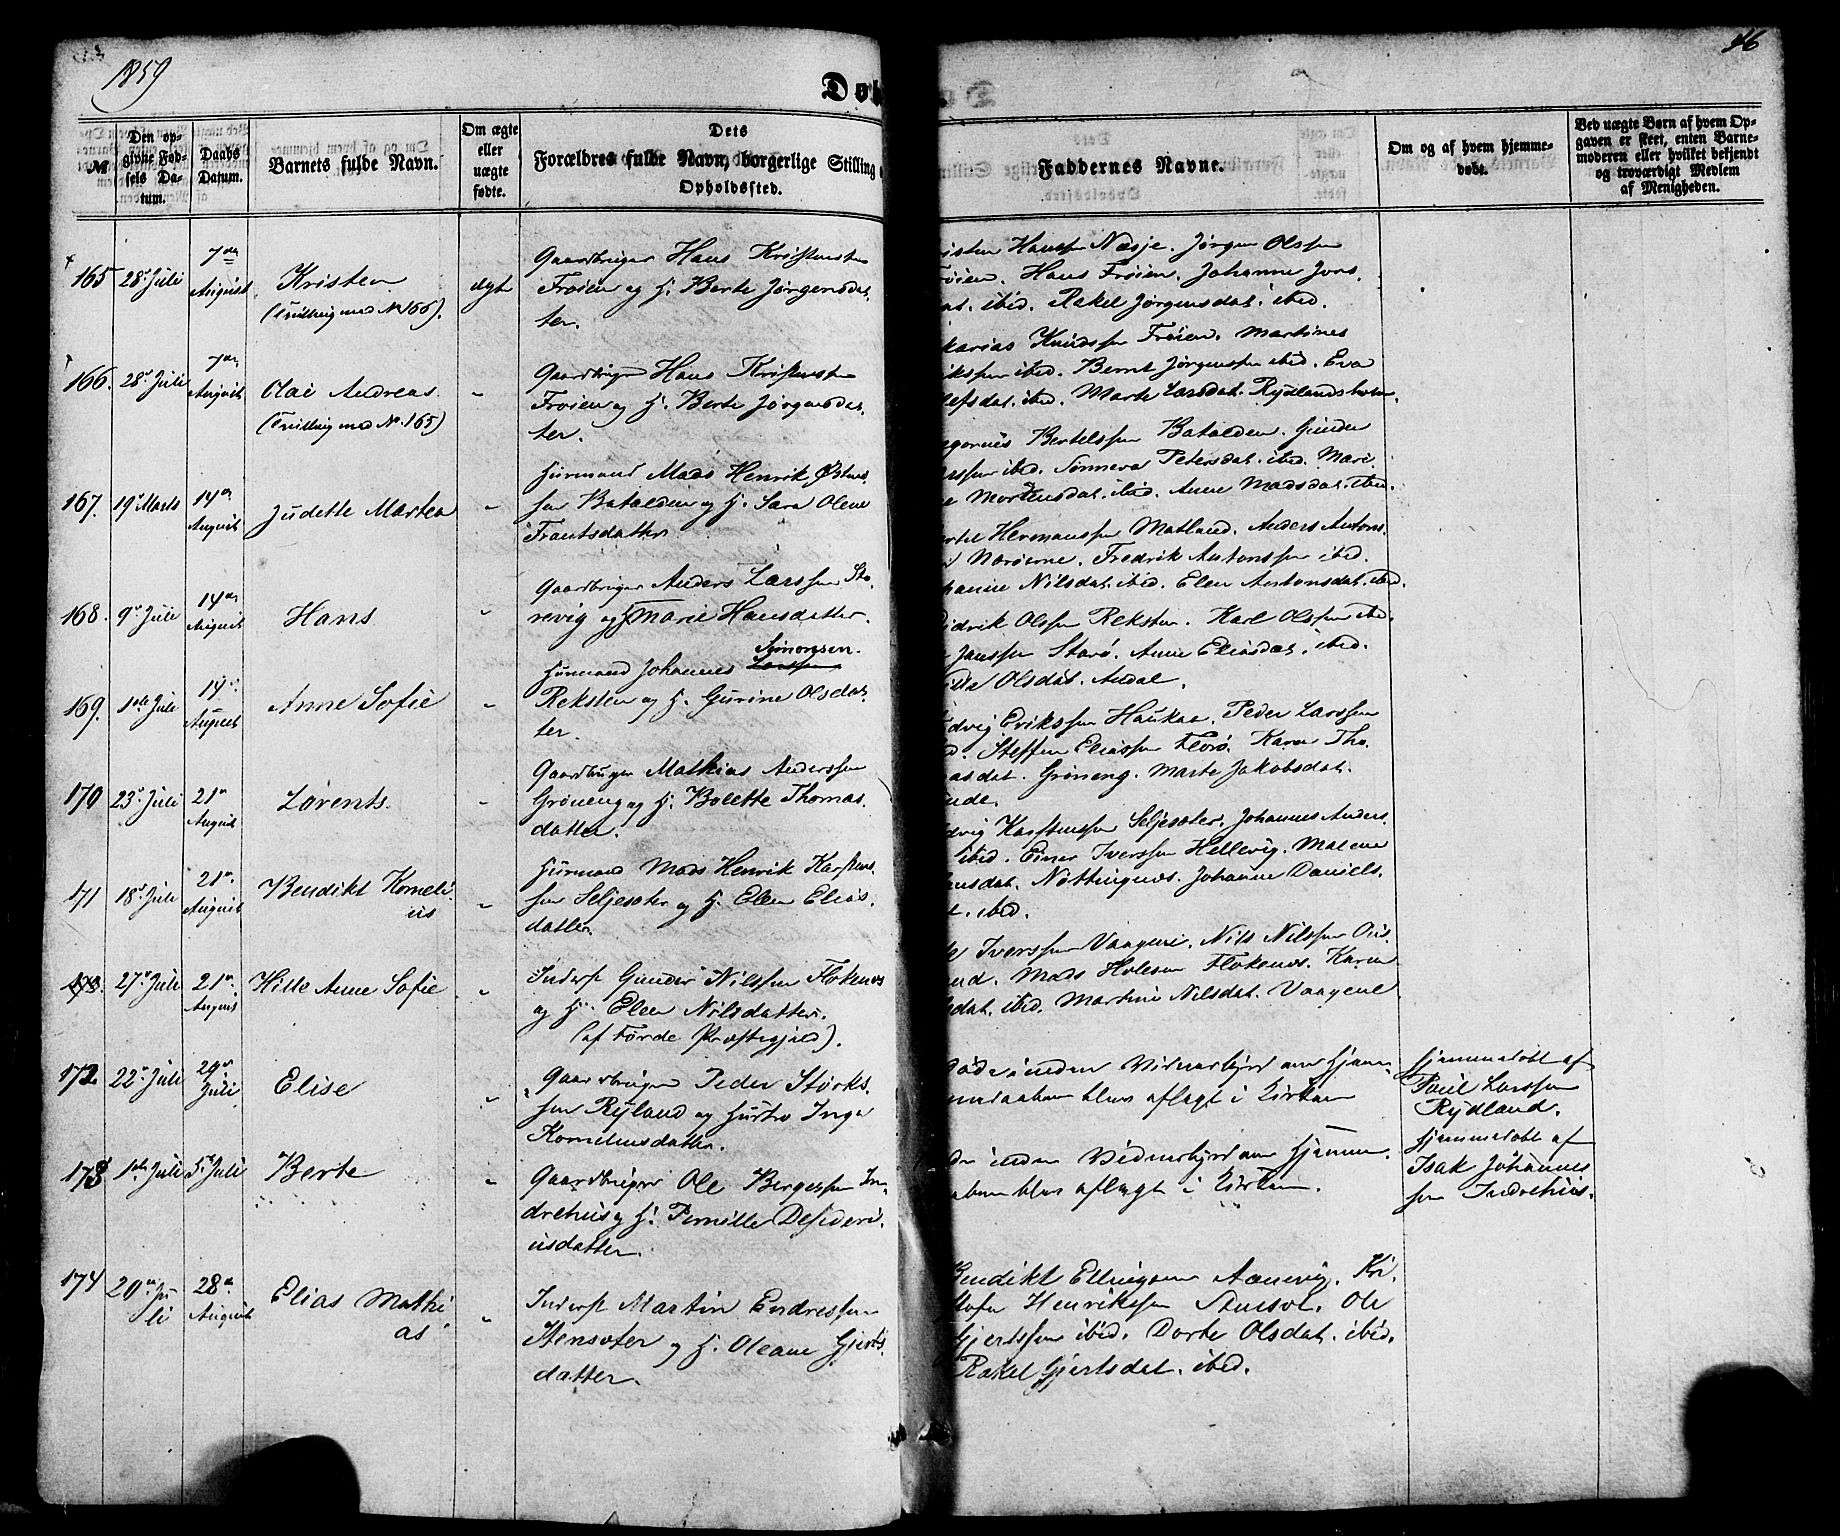 1859
46
Døb
№
Den op-
givne Fød-
sels Da-
tum.
Daabs
Datum.
Barnets fulde Navn.
Om ægte
eller
uægte
fødte.
Dets
Forældres fulde Navn, borgerlige Stilling
Opholdssted.
Faddernes Navne.
Om og af hvem hjemme-
døbt.
Ved uægte Børn af hvem Op-
gaven er skeet, enten Barne-
moderen eller hvilket bekjendt
og troværdigt Medlem
af Menigheden.
165 28 Juli 7de August
Kristen
(Tvilling med No 166).
ægte
Gaardbruger Hans Kristensen
Frøien og H. Berte Jørgensdat.
ter.
Hansen Næsje. Jørgen Olssen
Hans Frøien. Johanne Jons
ibid. Rakel Jørgensdat. ibid.
166. 28 Juli 7de August
Olai Andreas
(Tvilling med No. 165)
Gaardbruger Hans Kristensen
Frøien og H. Berte Jørgensdat.
ter.
Knudssen Frøien. Martines
ibid. Bernt Jørgenssen ibid. Eva
ibid. Marte Larsdat. Rydlandsholm.
167. 19 Marts 14de August
Judette Martea
Huusmand Mads Henrik
sen Batalden og H. Sara Olene
Frantsdatter
Bertelssen Batalden. Gunder
ibid. Sønneva Petersdat. ibid. Mari.
Mortensdat. ibid. Anne Madsdat. ibid.
168. 9 Juli 14de August
Hans
Gaardbruger Anders Larssen Sto.
revig og H Marie Hansdatter.
Hermanssen Matland. Anders Antons.
Nærøerne. Fredrik Antonssen ibid.
Nilsdat. ibid. Elen Antonsdat. ibid.
169. 1ste Juli 14 August
Anne Sofie
Simonssen.
Huusmand Johannes Larssen
Reksten og H. Gurine Olsdat
ter.
Olssen Reksten. Karl Olssen ibid.
Janssen Starø. Anne Eliasdat. ibid.
Olsdat. Andal.
170 23 Juli 21 August
Lorents.
Gaardbruger Mathias Anderssen
Grøneng og H. Bolette Thomas.
datter.
Erikssen Haukaa. Peder Larssen
Steffen Eliassen Florø. Karen Tho.
Grøneng. Marte Jakobsdat.
171 18 Juli 21 August
Bendikt Korneli
us
Huusmand Mads Henrik Karstens.
sen Seljesæter og H. Elen Elias.
datter.
Karstenssen Seljesæter. Johannes Anders.
ibid. Einer Iverssen Hellevig. Malene
Nøttingnes. Johanne Daniels.
ibid.
27 Juli 21 August
Hille Anne Sofie
Inderst Gunder Nilssen Flokenes
og H. Elen Nilsdatter.
(af Førde Præstegjeld).
Iverssen Vaagene. Nils Nilssen
Mads Flokenes. Karen
ibid. Martine Nilsdat. Vaagene
172 22 Juli 24 Juli
Elise
Gaardbruger Peder Størks.
sen Ryland og Hustro Inger
Korneliusdatter.
inden Vidnesbyrd om Hjem-
blev aflagt i Kirken
Hjemmedøbt af
Paul Larssen
Rydland.
173 1ste Juli 5 Juli
Berte
Gaardbruger Ole Bergessen In-
drehus og H. Pernille Desideri.
usdatter.
inden Vidnesbyrd om Hjemme.
blev aflagt i Kirken.
Hjemmedøbt af
Isak Johannes
sen Indrehus.
174 20 Ju
li 28 August
Elias Mathi
as
Inderst Martin Endressen
Stensæter og H. Oleane Gjerts
datter.
Bendikt Ellingsen Aanevig. Kri.
Henrikssen Ole
Gjertssen ibid. Dorte Olsdat. ibid.
Rakel Gjertsdat. ibid.